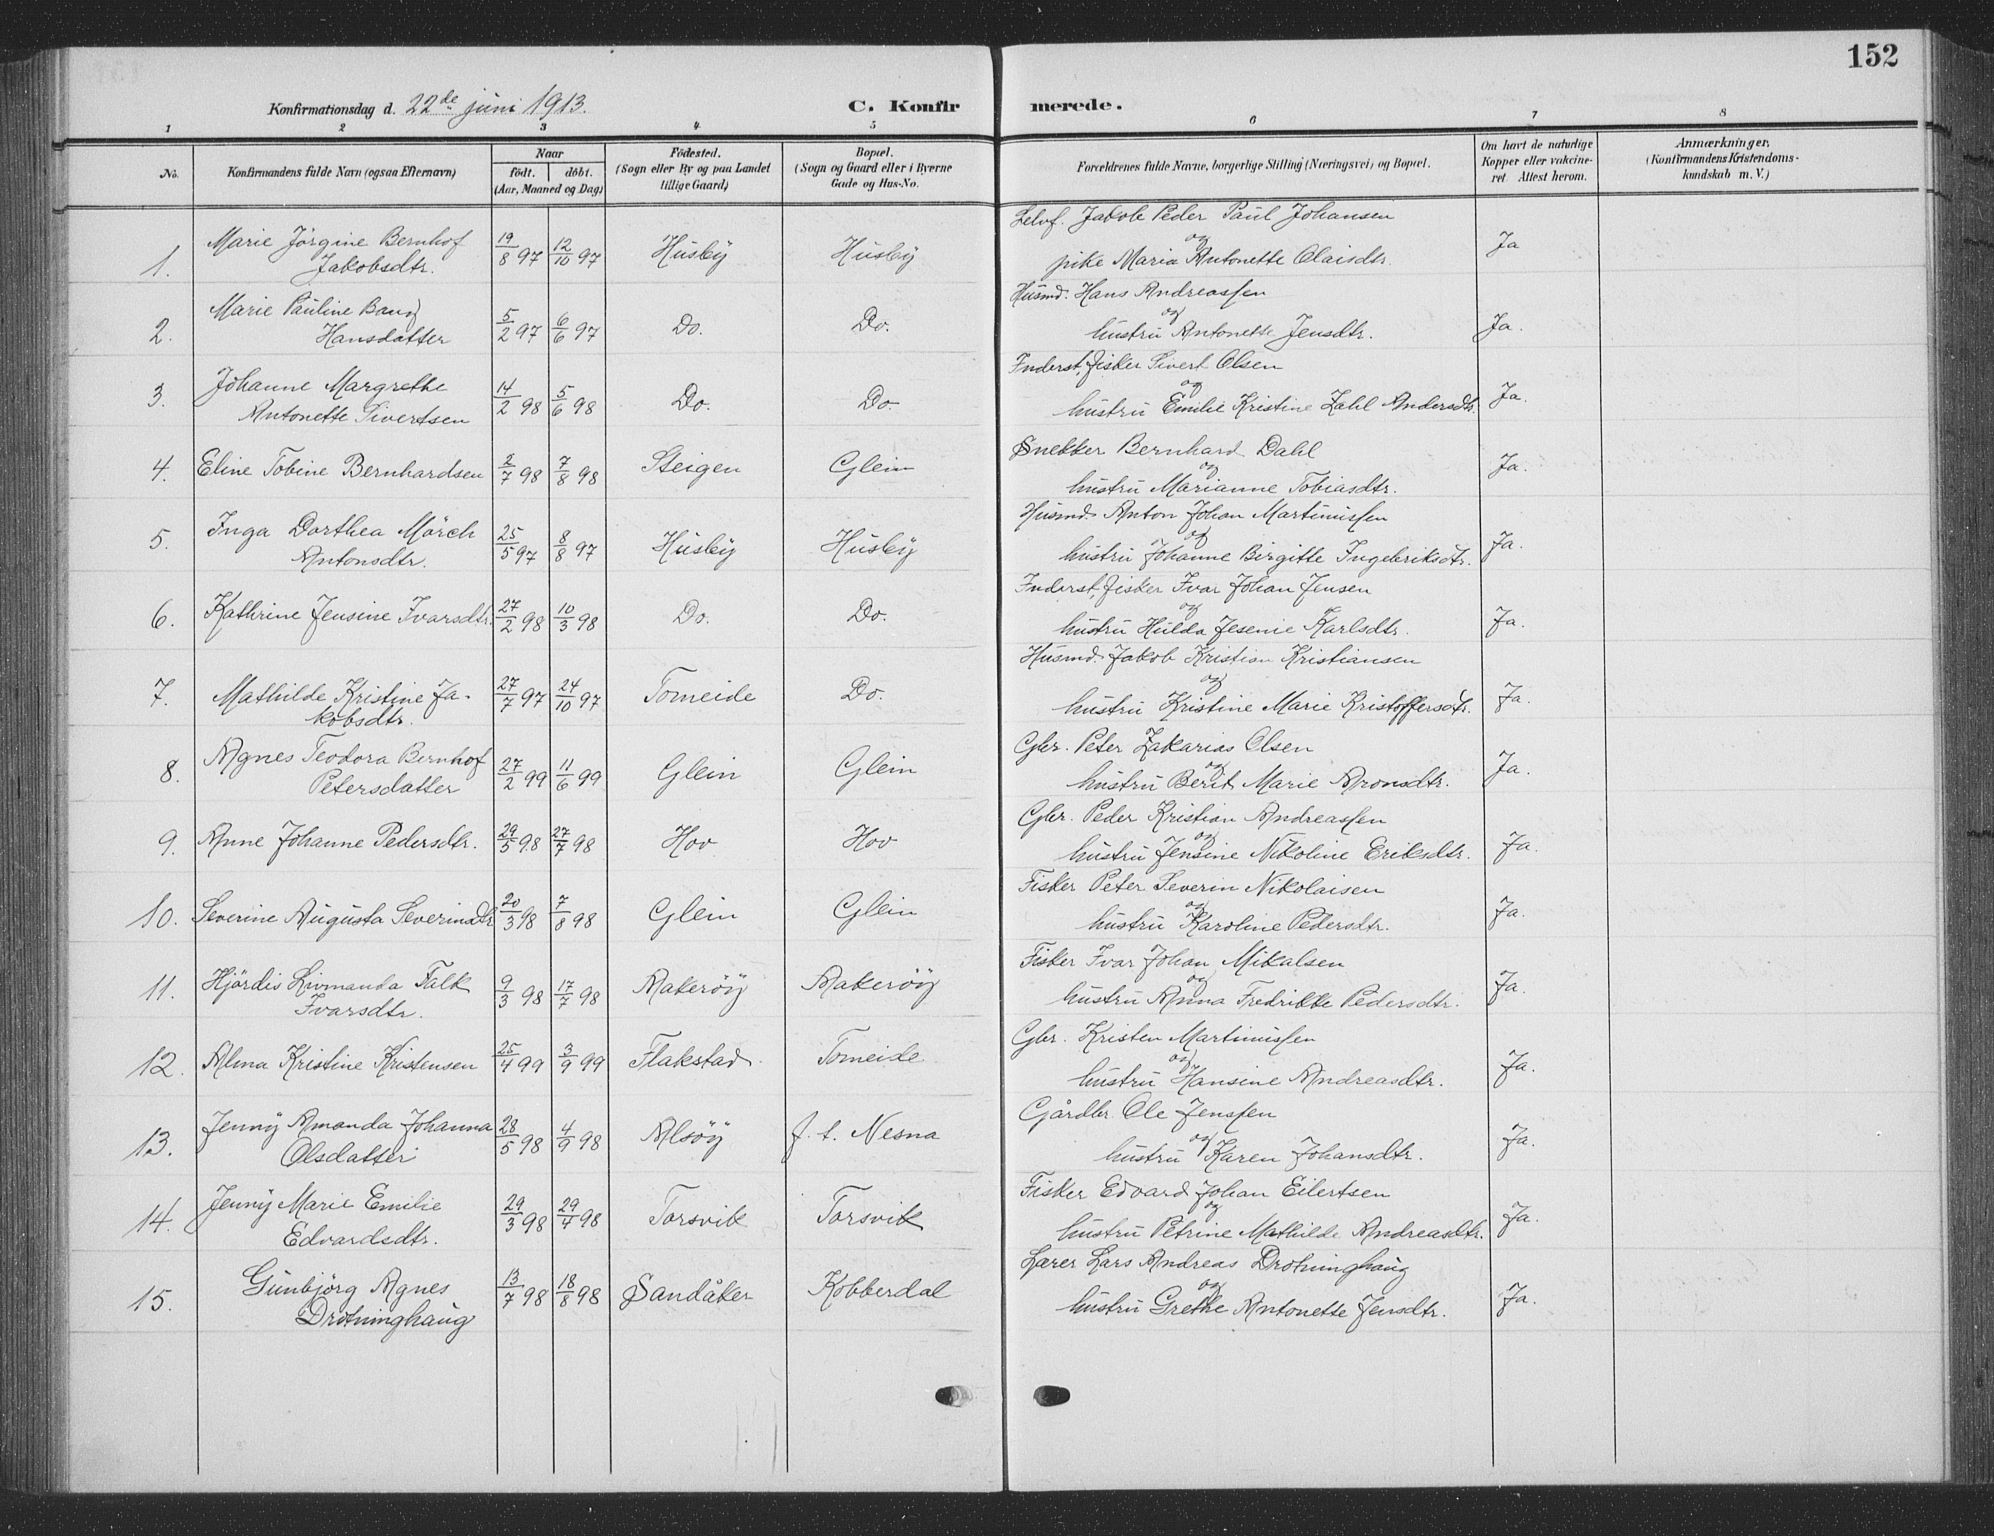 152
Konfirmationsdag d. 22de juni 1913.
C. Konfirmerede.
1 2 3 4 5 6 7 8
No. Konfirmandens fulde Navn (ogsaa Efternavn) Naar födt. döbt. (Aar, Maaned og Dag) Födested. (Sogn eller By og paa Landet tillige Gaard) Bopæl. (Sogn og Gaard eller i Byerne Gade og Hus-No. Forældrenes fulde Navne, borgerlige Stilling (Næringsvei) og Bopæl. Om havt de naturlige Kopper eller vakcineret. Attest herom. Anmærkninger. (Konfirmandens Kristendomskundskab m. V.)
1. Marie Jörgine Bernhof Jakobsdtr. 19/8 97 12/10 97 Husby Husby
Selvf. Jakob Peder Paul Johansen
og
pike Maria Antonette Olaisdtr. Ja
2. Marie Pauline Bang Hansdatter 5/2 97 6/6 97 Do. Do.
Husmd. Hans Andreassen
og
hustru Antonette Jensdtr. Ja.
3. Johanne Margrethe Antonette Sivertsen 14/2 98 5/6 98 Do. Do.
Inderst, fisker Sivert Olsen
og
hustru Emilie Kristine Zahl Andersdtr. Ja.
4. Eline Tobine Bernhardsen 2/7 98 7/8 98 Steigen Glein
Snekker Bernhard Dahl
og
hustru Marianne Tobiasdtr. Ja.
5. Inga Dorthea Mörch Antonsdtr. 25/5 97 8/8 97 Husby Husby
Husmd. Anton Johan Martinussen
og
hustru Johanne Birgitte Ingebriktsdtr. Ja.
6. Kathrine Jensine Ivarsdtr. 27/2 98 10/3 98 Do. Do.
Inderst, fisker Ivar Johan Jensen
og
hustru Hulda Jesenie Karlsdtr. Ja.
7. Mathilde Kristine Jakobsdtr. 27/7 97 24/10 97 Tomeide Do.
Husmd. Jakob Kristian Kristiansen
og
hustru Kristine Marie Kristoffersdtr. Ja.
8. Agnes Teodora Bernhof Petersdatter 27/2 99 11/6 99 Glein Glein
Gbr. Peter Zakarias Olsen
og
hustru Berit Marie Aronsdtr. Ja.
9. Anne Johanne Pedersdtr. 29/5 98 27/7 98 Hov Hov
Gbr. Peder Kristian Andreassen
og
hustru Jensine Nikoline Eriksdtr. Ja.
10. Severine Augusta Severinsdtr 20/3 98 7/8 98 Glein Glein
Fisker Peter Severin Nikolaisen
og
hustru Karoline Pedersdtr. Ja.
11. Hjördis Livmanda Falk Ivarsdtr. 9/3 98 17/7 98 Åkeröy Åkeröy
Fisker Ivar Johan Mikalsen
og
hustru Anna Fredrikke Pedersdtr. Ja.
12. Alma Kristine Kristensen 25/4 99 3/9 99 Flakstad. Tomeide
Gbr. Kristen Martinussen
og
hustru Hansine Andreasdtr. Ja.
13. Jenny Amanda Johanna Olsdatter 28/5 98 4/9 98 Alsöy f. t. Nesna
Gårdbr. Ole Jenssen
og
hustru Karen Johansdtr. Ja.
14. Jenny Marie Emilie Edvardsdtr. 29/3 98 29/4 98 Torsvik Torsvik
Fisker Edvard Johan Eilertsen
og
hustru Petrine Mathilde Andreasdtr. Ja.
15. Gunbjörg Agnes Drotninghaug 13/7 98 18/8 98 Sandåker Kobberdal
Lærer Lars Andreas Drotninghaug
og
hustru Grethe Antonette Jensdtr. Ja.